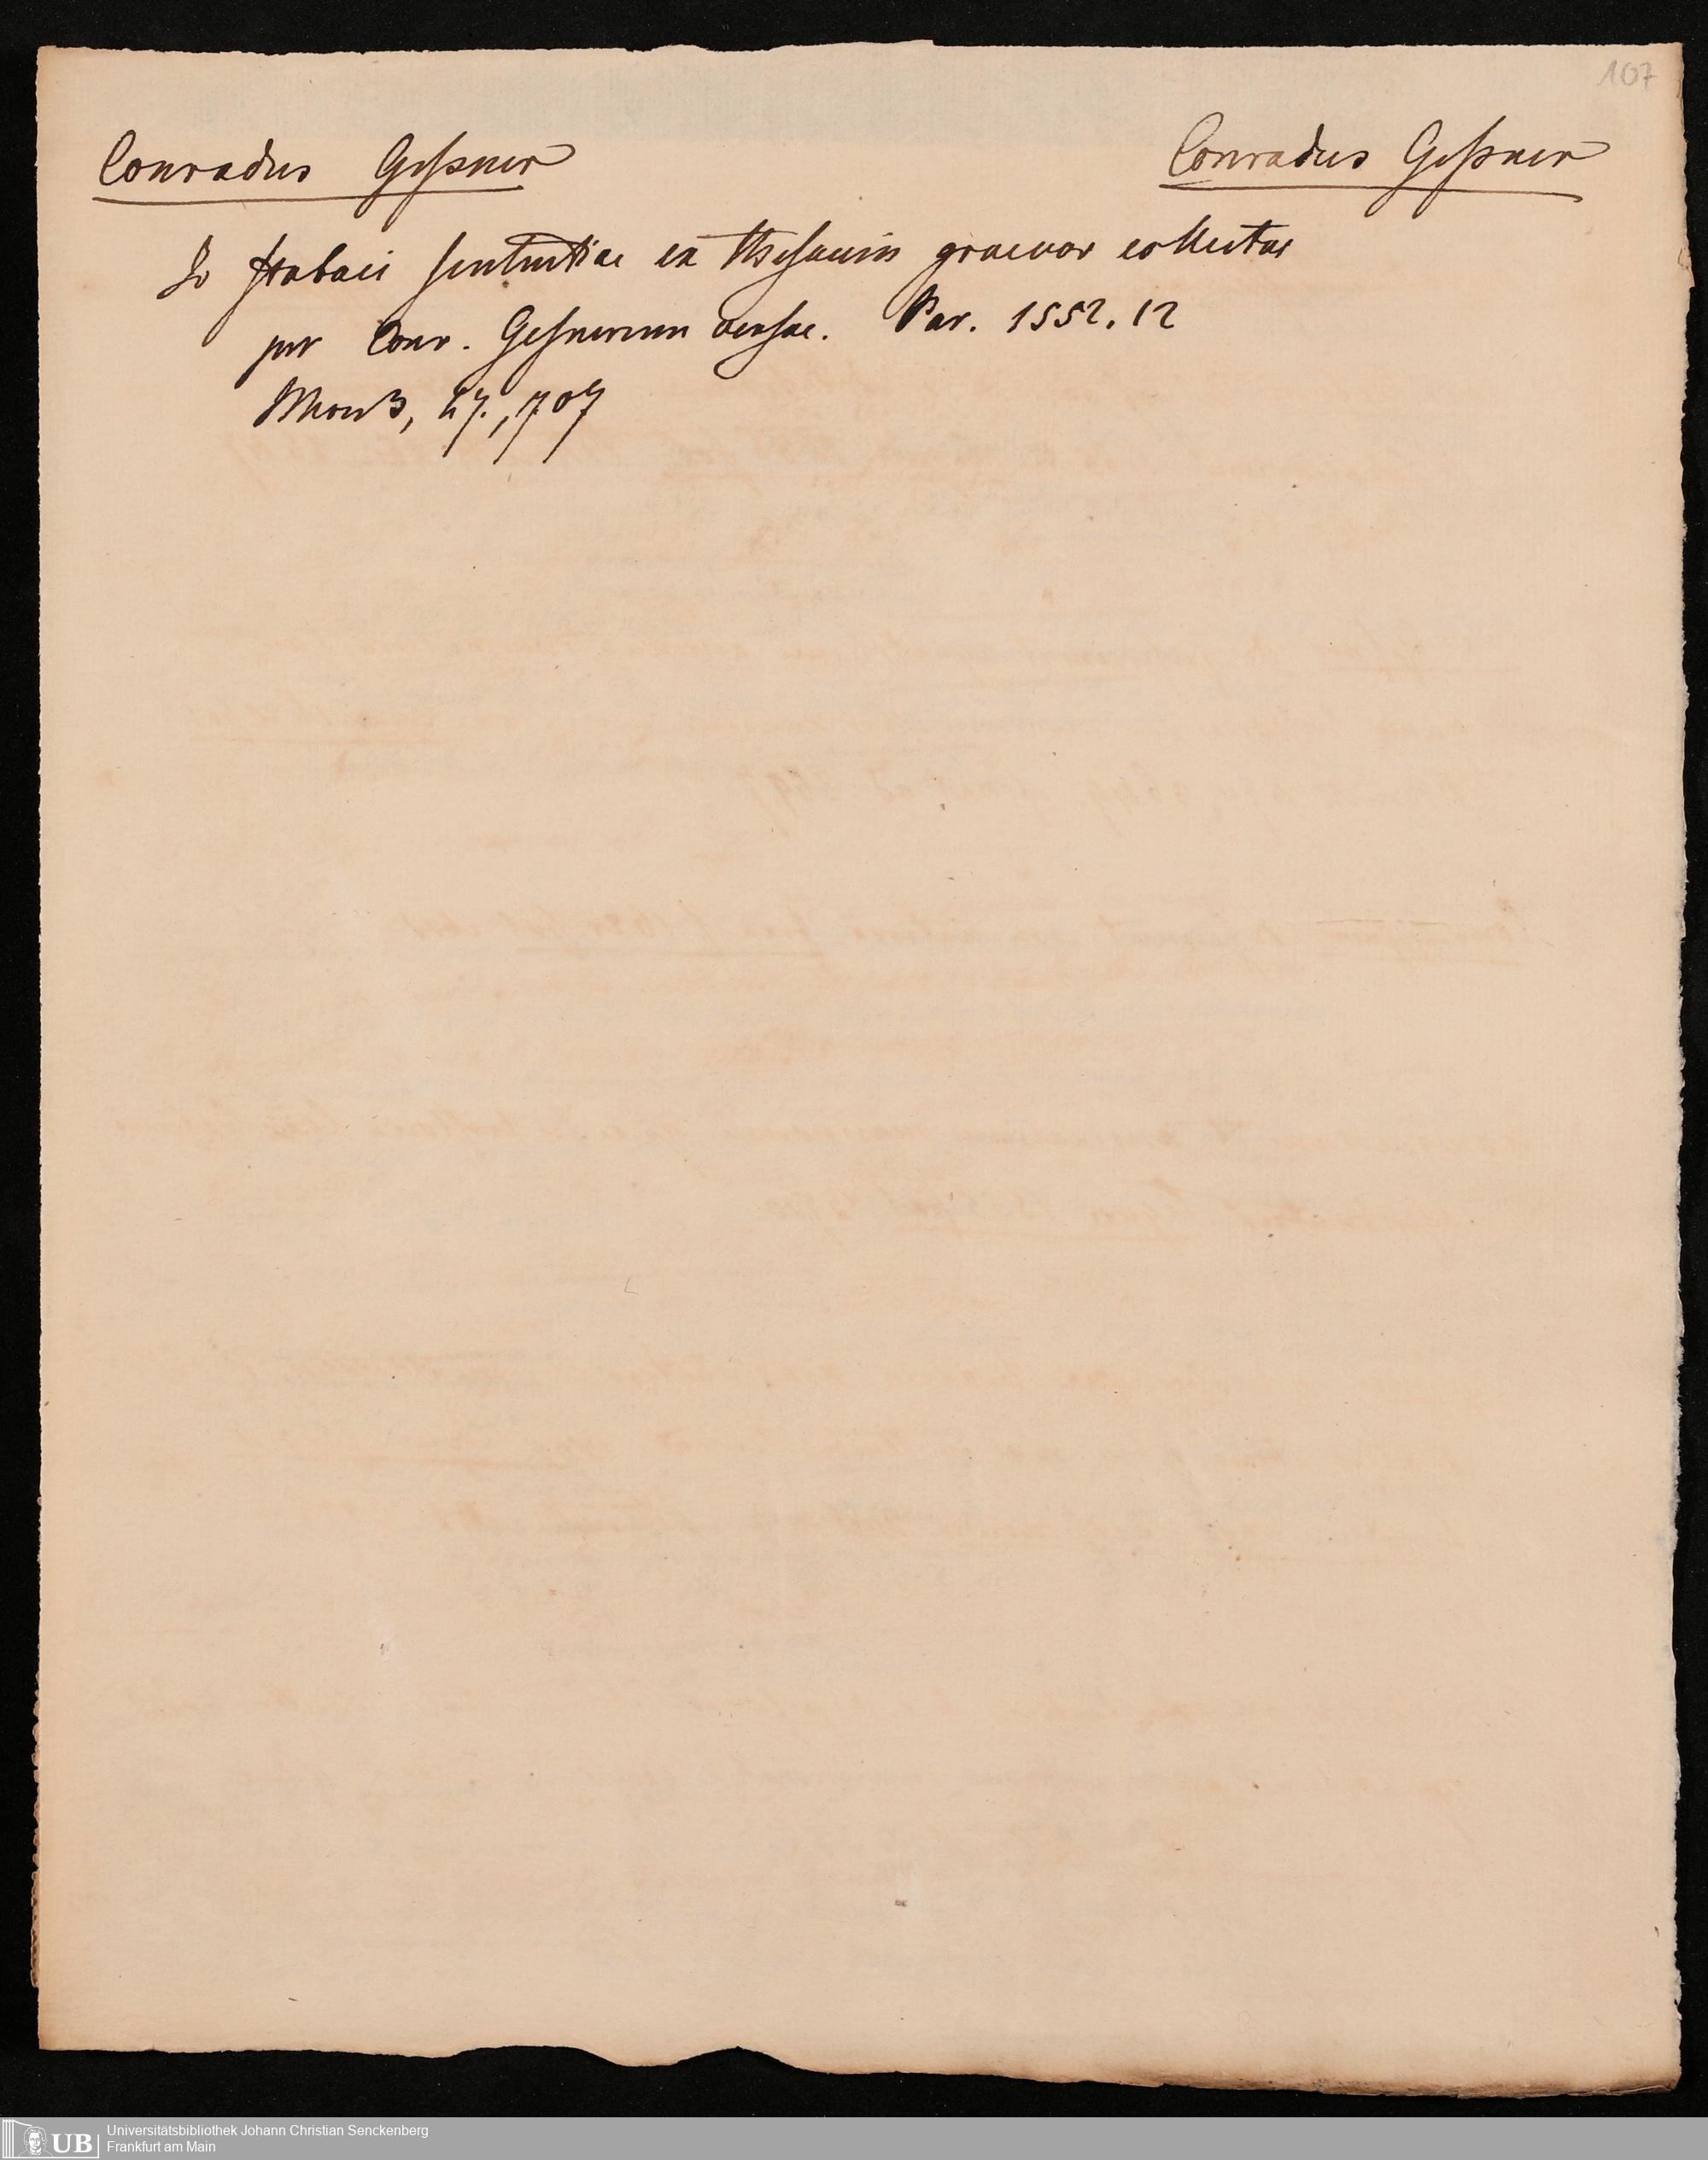 107
Conradus Geßner
Conradus Geßner
Jo Stobaei sententiae ex thesauris graecor collectae
per Conr. Gesnerum versae. Par. 1552. 12
27., 707
UB Universitätsbibliothek Johann Christian Senckenberg
Frankfurt am Main